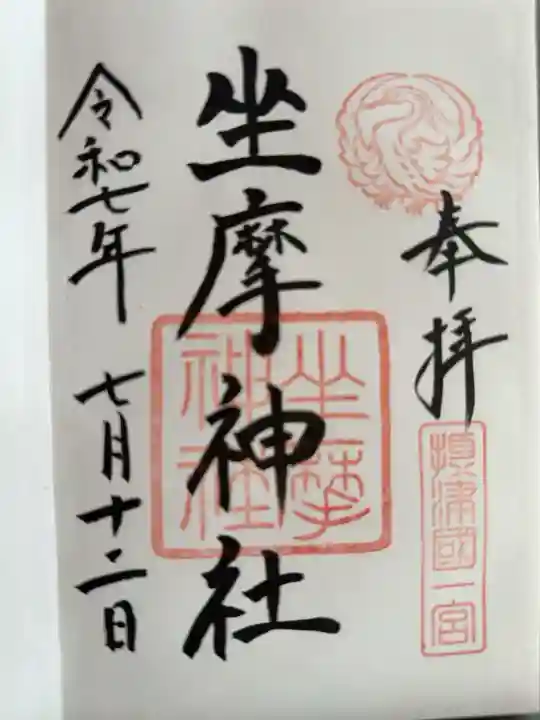 奉拝
攝津國一宮
坐摩神社
坐摩神社
令和七年 七月十二日